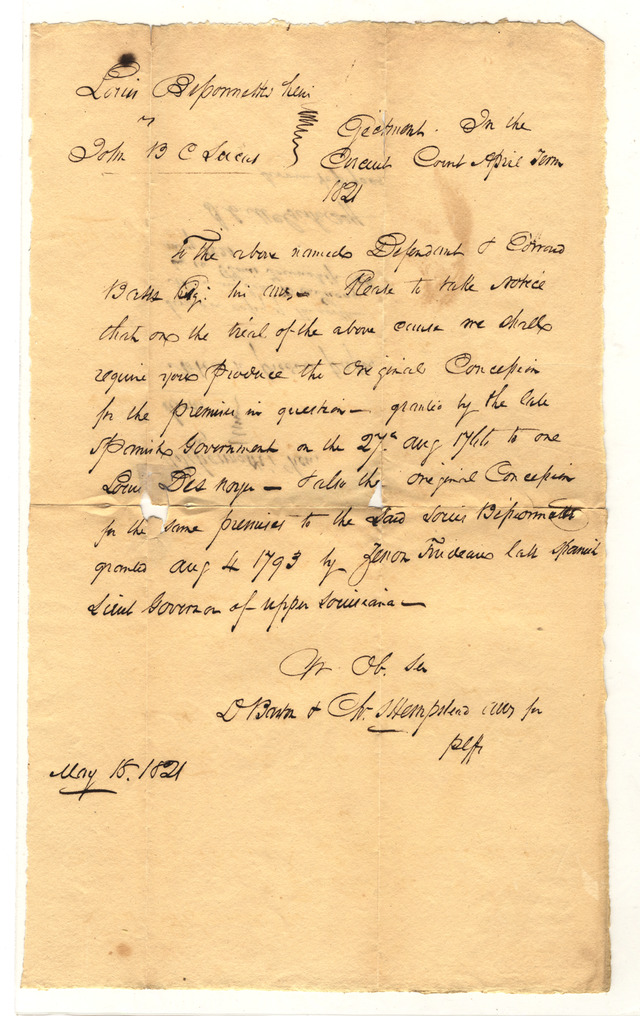 Louis Bissonnetts heirs
v
John B C Lucas
Ejectment. In the
Circuit Court April Term
1821
To the above named Defendant & Edward
Bates Esq: his atty — Please to take Notice
that on the trial of the above cause we shall
require you produce the original Concession
for the premises in question — granted by the late
Spanish Government on the 27th aug 1766 to one
Louis Des noyer — & also the original Concession
for the same premises to the said Louis Bissonnette
granted aug 4 1793 by Zenon Trudeau late Spanish
Lieut Governor of upper Louisiana —
Yr Ob. Ser
D Barton & Ch. S Hempstead attys for
plffs
May 18. 1821